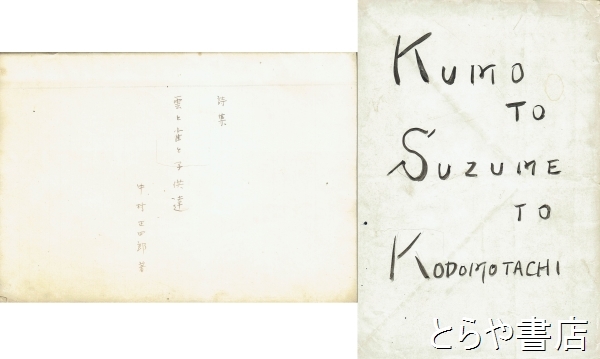 詩集
雲と雀と子供達
中村正四郎著
KUMO
TO
SUZUME
TO
KODOMOTACHI
とらや書店